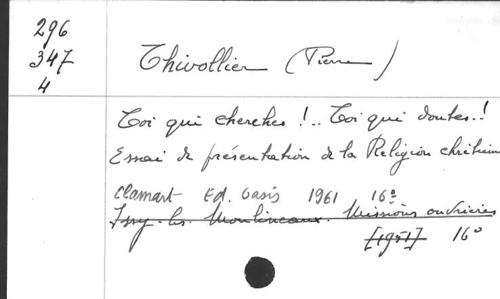 296
347
4
Thivollier (Pierre)
Toi qui cherches !.. Toi qui doutes..!
Essai de présentation de la Religion chrétienne
Clamart Ed. Oasis 1961 16º
Issy-les-Moulineaux. Missions ouvrières
[1951] 16º